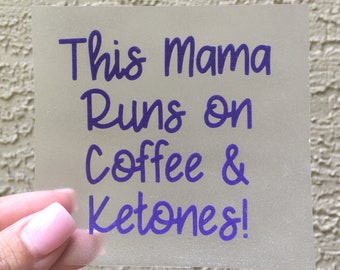 This Mama
Runs on
Coffee &
Ketones!